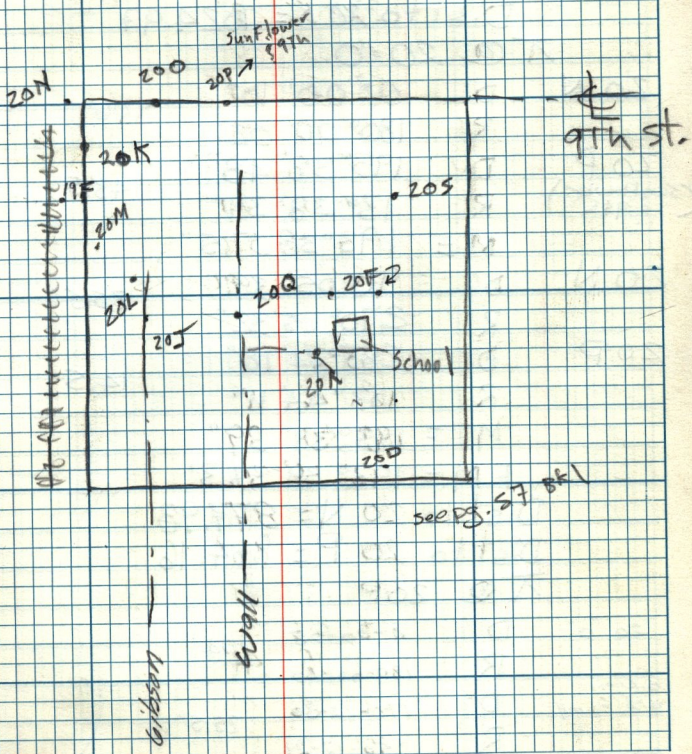 SunFlower
& 9Th
20N
20O
20P
9Th st.
20K
19F
20S
20M
20L
20Q
20F
20J
School
20R
20D
see pg. 57 BK1
Wall
Gibson